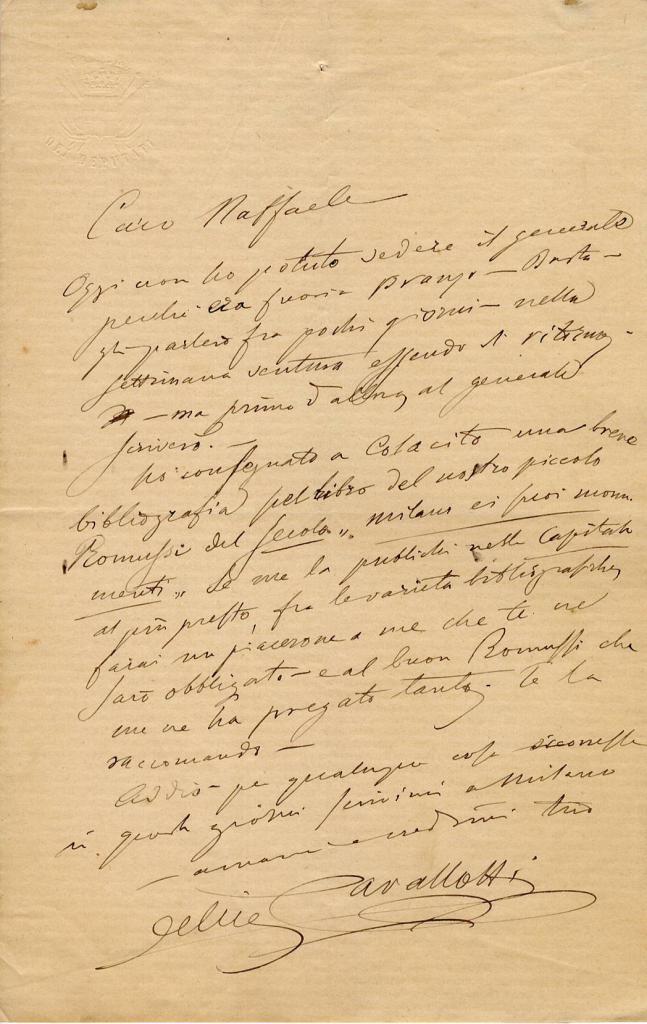 DEI DEPUTATI
Caro Raffaele
Oggi non ho potuto vedere il generale
perchè era fuori a pranzo – Basta –
gli parlerò fra pochi giorni – nella
settimana ventura essendo di ritorno
– ma prima d'allora al generale
scriverò. –
Ho consegnato a Colacito una breve
bibliografia pel libro del nostro piccolo
Romussi del Secolo „ Milano ei suoi monu
menti „ Se me la pubblichi nella Capitale
al più presto, fra le varietà bibliografiche,
farai un piacerone a me che te ne
sarò obbligato – e al buon Romussi che
me ne ha pregato tanto. Te la
raccomando –
Addio – per qualunque cosa
in questi giorni scrivimi a Milano
– amami e credimi tuo
Felice Cavallotti